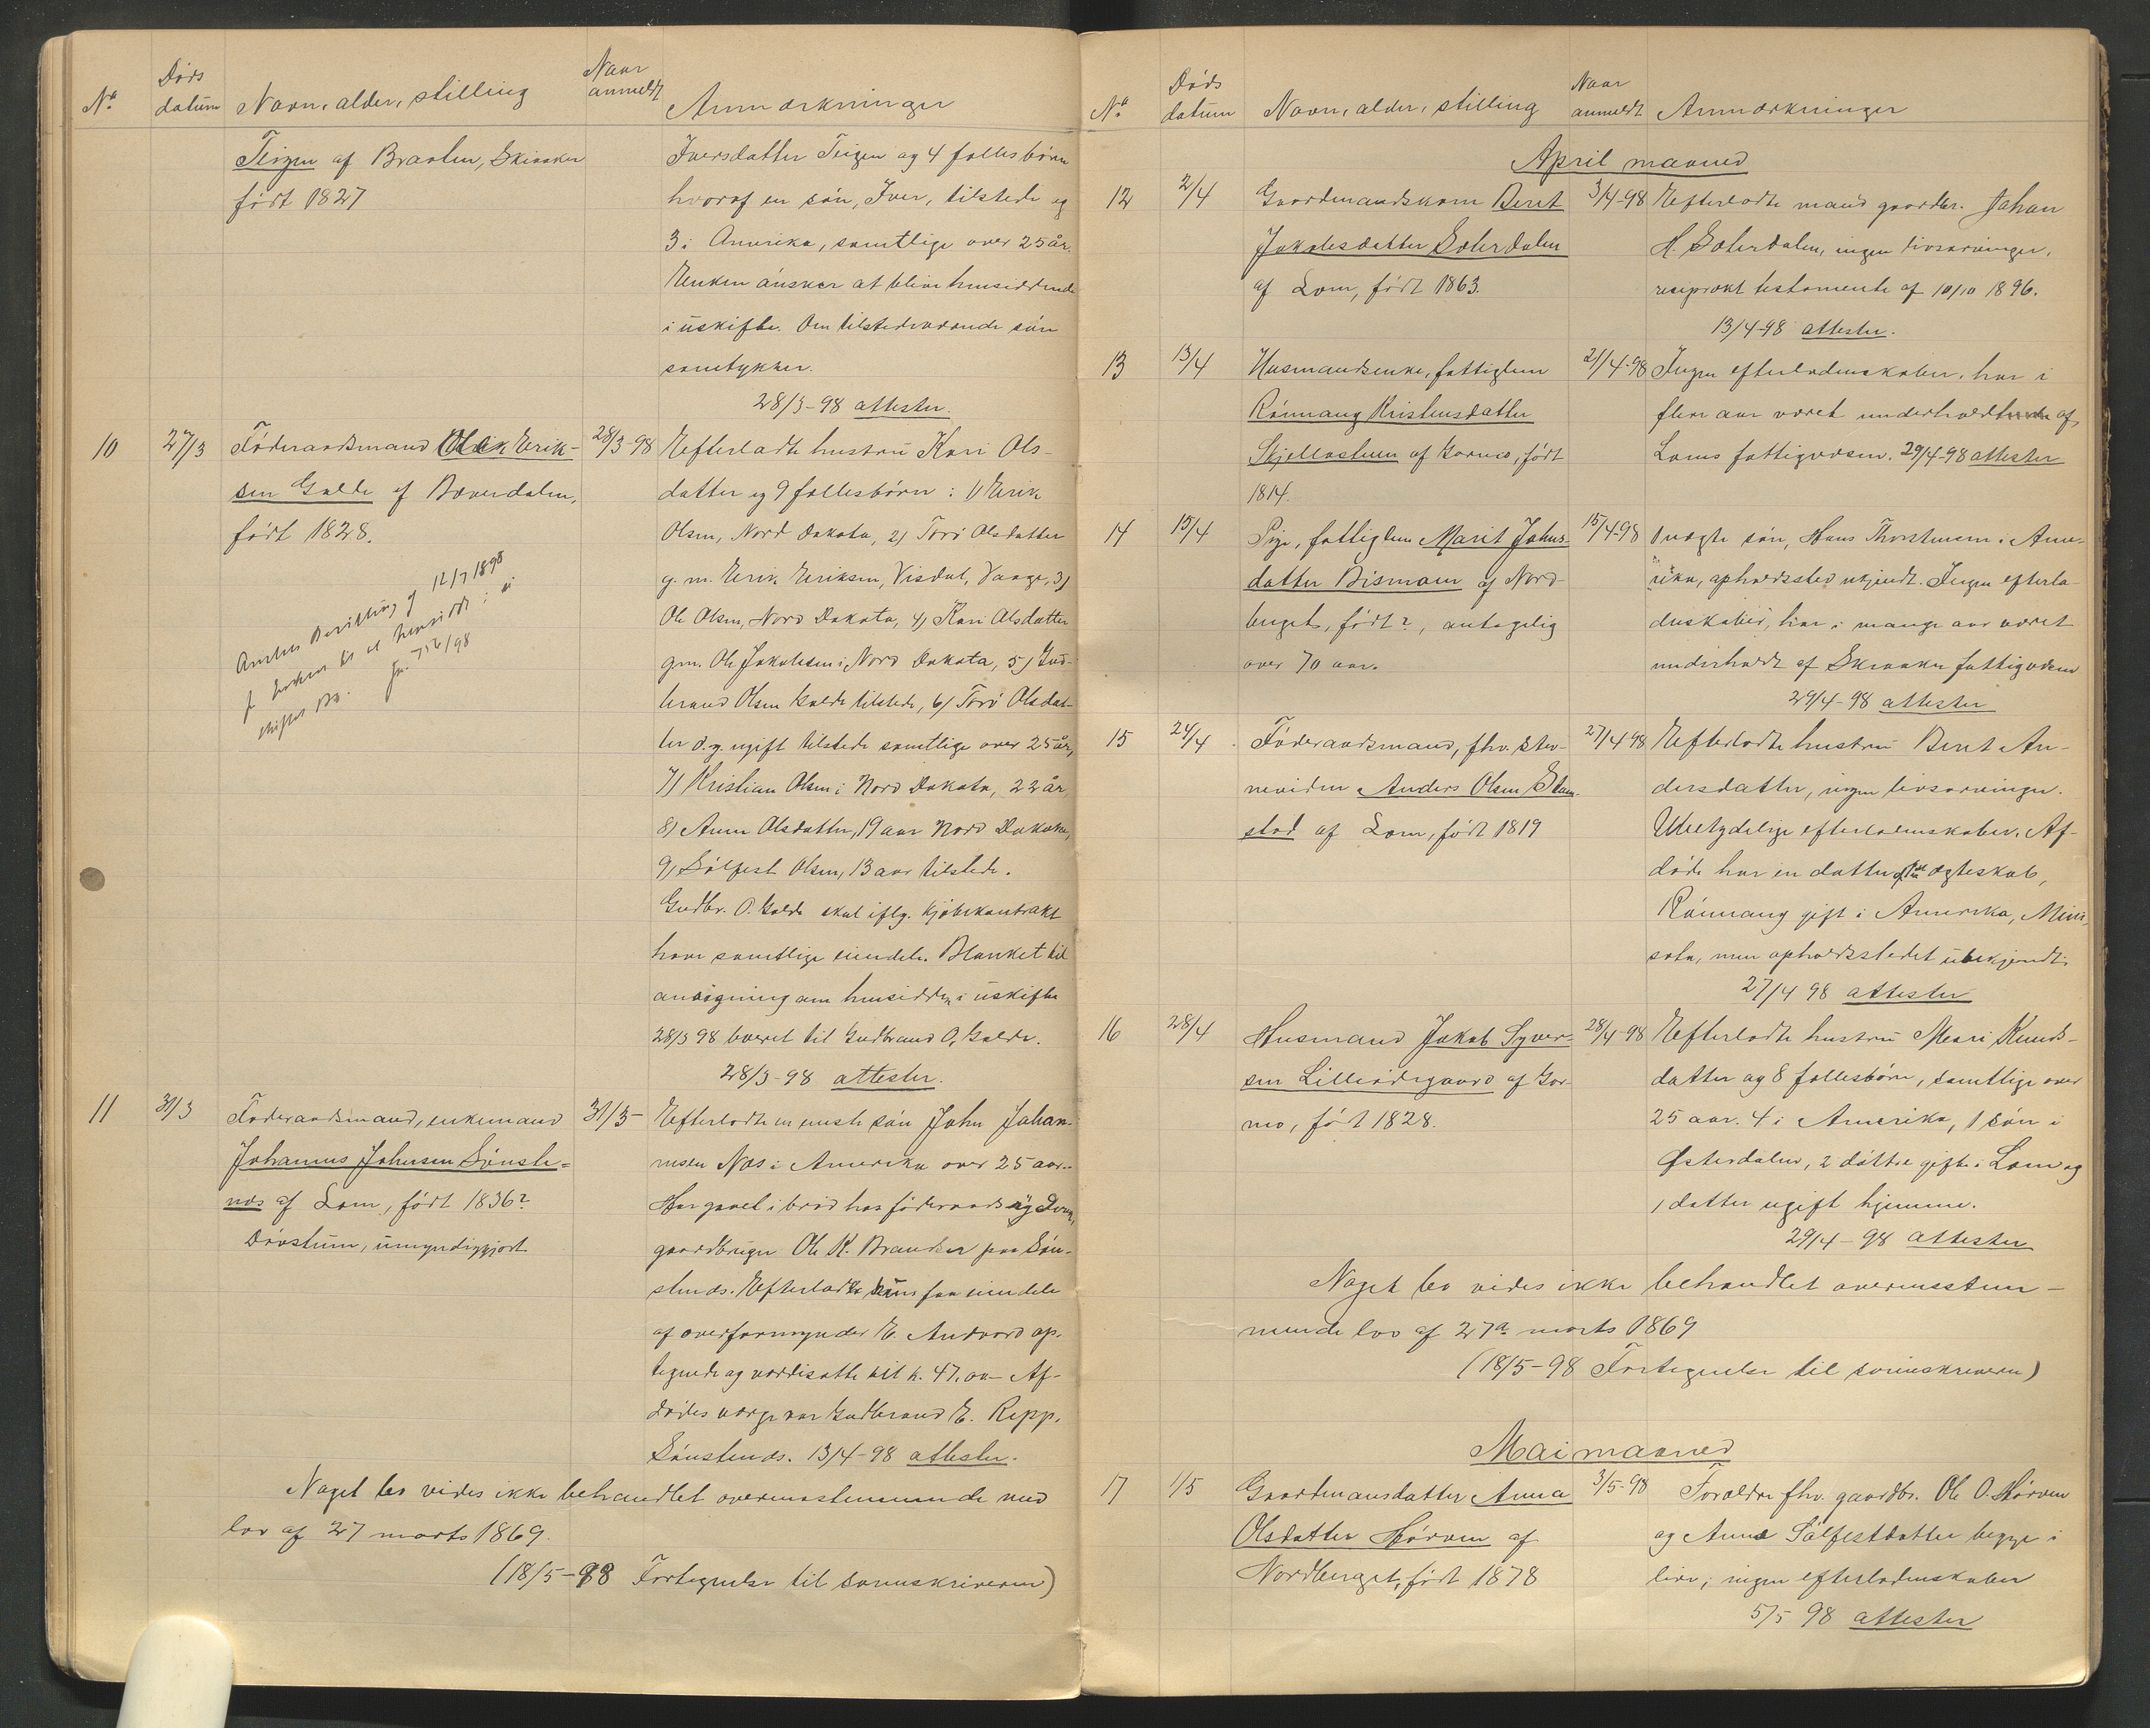 No. Døds datum Navn, alder, stilling Naar anmeldt Anmærkninger
Teigen af Braaten, Skiaaker
født 1827
Iversdatter Teigen og 4 fællesbørn
hvoraf en søn, Iver, tilstede og
3 i Amerika, samtlige over 25 år.
Enken ønsker at blive hensiddende
i uskifte. Den tilstedeværende søn
samtykker.
28/3-98 attester.
10 27/3 Føderaadsmand Ole Erik-
sen Galde af Bøverdalen,
født 1828.
12/7 1898
756/98
28/3-98 Efterladte hustru Kari Ols-
datter og 9 fællesbørn: 1) Erik
Olsen, Nord Dakota, 2) Toro Olsdatter
g. m. Erik Eriksen, Visdal, Vaage, 3)
Ole Olsen, Nord Dakota, 4) Kari Olsdatter
gm. Ole Jakobsen i Nord Dakota, 5) Gud-
brand Olsen Galde tilstede, 6) Toro Olsdat-
ter d.y. ugift tilstede samtlige over 25 år,
7) Kristian Olsen i Nord Dakota, 22 år,
8) Anne Olsdatter, 19 aar Nord Dakota,
9) Sølfest Olsen, 13 aar tilstede.
Gudbr. O. Galde skal iflg. kjøbekontrakt
have samtlige eiendele. Blanket til
ansøgning om hensidden i uskifte
28/3 98 leveret til Gudbrand O. Galde.
28/3-98 attester.
11 31/3 Føderaadsmand, enkemand
Johannes Johnsen Sønste-
næs af Lom, født 1836?
Døvstum, umyndiggjort
31/3- Efterladte en eneste søn John Johan-
nesen Næs i Amerika over 25 aar.
Har gaaet i brød hos føderaads
gaardbruger Ole K. Brandser paa Søn-
stenæs. Efterladte faa eiendele
af overformynder E. Andvord op-
tegnede og værdisatte til k. 47,00 - Af-
dødes værge var Gudbrand E. Repp.
Sønstenæs. 13/4-98 attester.
Noget bo vides ikke behandlet overensstemmende med
lov af 27 marts 1869.
(18/5-98 Fortegnelse til sorenskriveren)
No. Døds datum Navn, alder, stilling Naar anmeldt Anmærkninger
April maaned
12 2/4 Gaardmandskone Beret
Jakobsdatter Solerdalen
af Lom, født 1863.
3/4-98 Efterladte mand gaardbr. Johan
H. Solerdalen, ingen livsarvinger,
reciprokt testamente af 10/10 1896.
13/4-98 attester.
13 13/4 Husmandsenke, fattiglem
Rønnaug Kristensdatter
Skjellastuen af Garmo, født
1814.
21/4-98 Ingen efterladenskaber, har i
flere aar været underholdt af
Loms fattigvæsen. 29/4-98 attester
14 15/4 Pige, fattiglem Marit Johns-
datter Bismoen af Nord-
berget, født?, antagelig
over 70 aar.
15/4-98 Uægte søn, Hans Thorstensen i Ame-
rika, opholdssted ukjendt. Ingen efterla-
denskaber, har i mange aar været
underholdt af Skiaaker fattigvæsen
29/4-98 attester
15 24/4 Føderaadsmand, fhv. stev-
nevidne Anders Olsen Stam-
stad af Lom, født 1819
27/4 98 Efterladte hustru Beret An-
dersdatter, ingen livsarvinger.
Ubetydelige efterladenskaber. Af-
døde har en datter før ægteskab,
Rønnaug gift i Amerika, Mine-
sota, men opholdsstedet ubekjendt.
27/4 98 attester
16 28/4 Husmand Jakob Syver-
sen Lilleødegaard af Gar-
mo, født 1828.
28/4-98 Efterladte hustru Mari Knuds-
datter og 8 fællesbørn, samtlige over
25 aar. 4 i Amerika, 1 søn i
Østerdalen, 2 døttre gifte i Lom og
1 datter ugift hjemme.
29/4-98 attester
Noget bo vides ikke behandlet overensstem-
mende lov af 27de marts 1869
(18/5-98 Fortegnelse til sorenskriveren)
Mai maaned
17 1/5 Gaardmansdatter Anna
Olsdatter Hørven af
Nordberget, født 1878
3/5-98 Forældre fhv. gaardbr. Ole O. Hørven
og Anne Sølfestdatter begge i
live; ingen efterladenskaber
5/5 98 attester